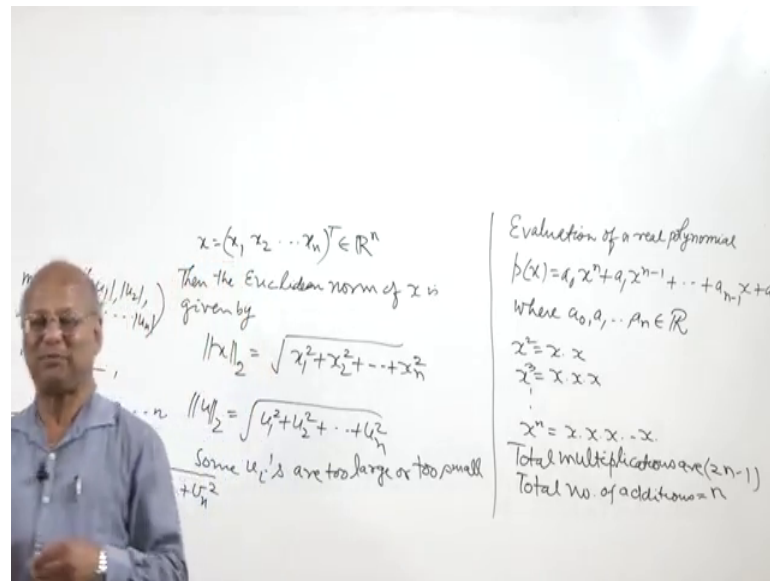 |u₂|,
⋯|uₙ|)
⋯ n
+ vₙ²
x = (x₁ x₂ ⋯ xₙ)ᵀ ∈ ℝⁿ
Then the Euclidean norm of x is
given by
||x||₂ = √(x₁² + x₂² + ⋯ + xₙ²)
||u||₂ = √(u₁² + u₂² + ⋯ + uₙ²)
Some uᵢ's are too large or too small
Evaluation of a real polynomial
p(x) = a₀xⁿ + a₁xⁿ⁻¹ + ⋯ + aₙ₋₁x + a
where a₀, a₁ ⋯ aₙ ∈ ℝ
x² = x.x
x³ = x.x.x
⋮
xⁿ = x.x.x.⋯x.
Total multiplications are (2n-1)
Total no. of additions = n